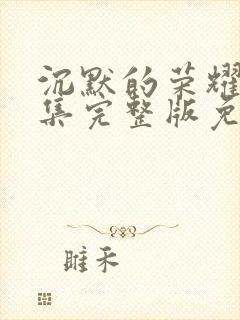 沉默的荣耀
集完整版免
雎禾